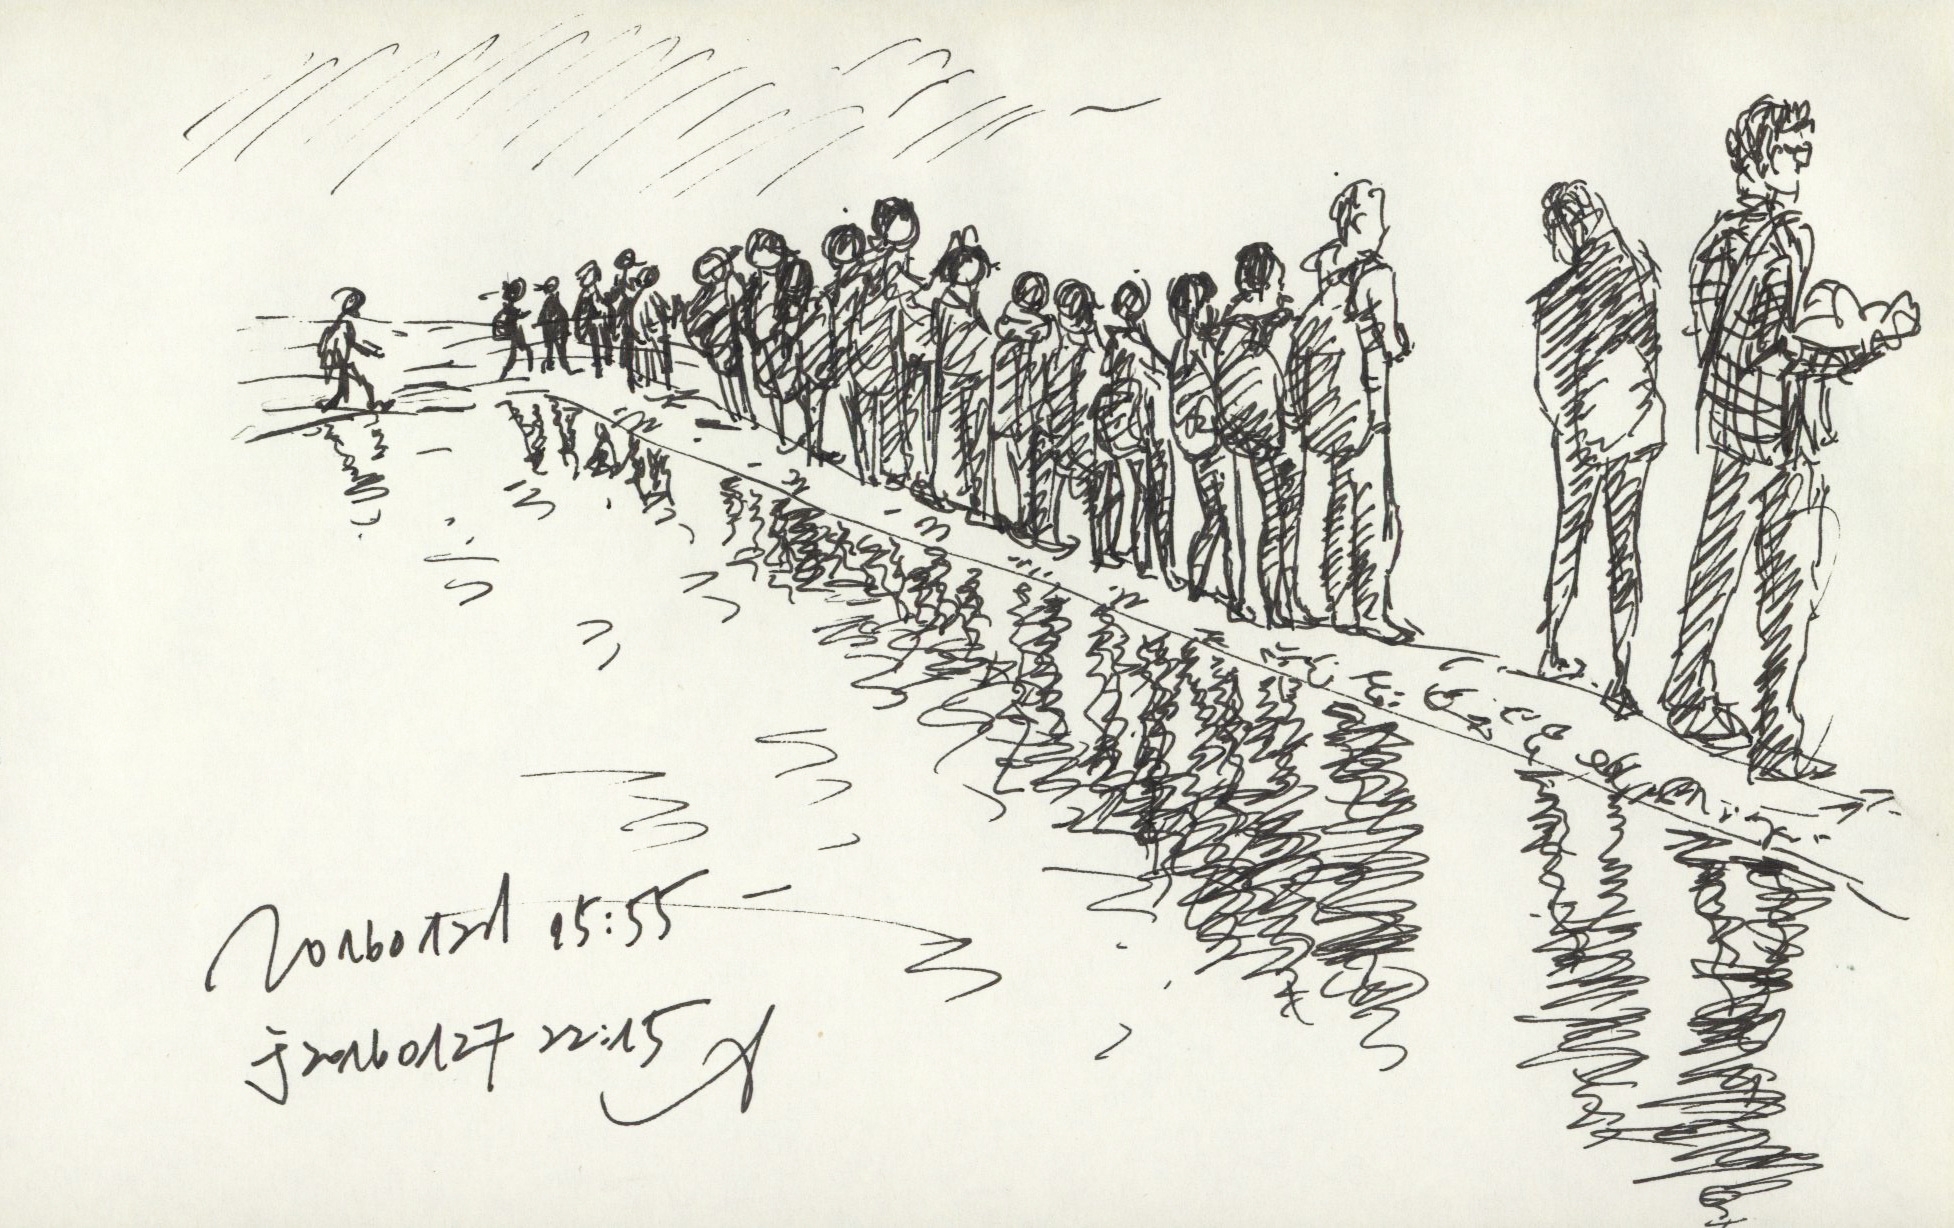 20160121 15:55
于20160127 22:15